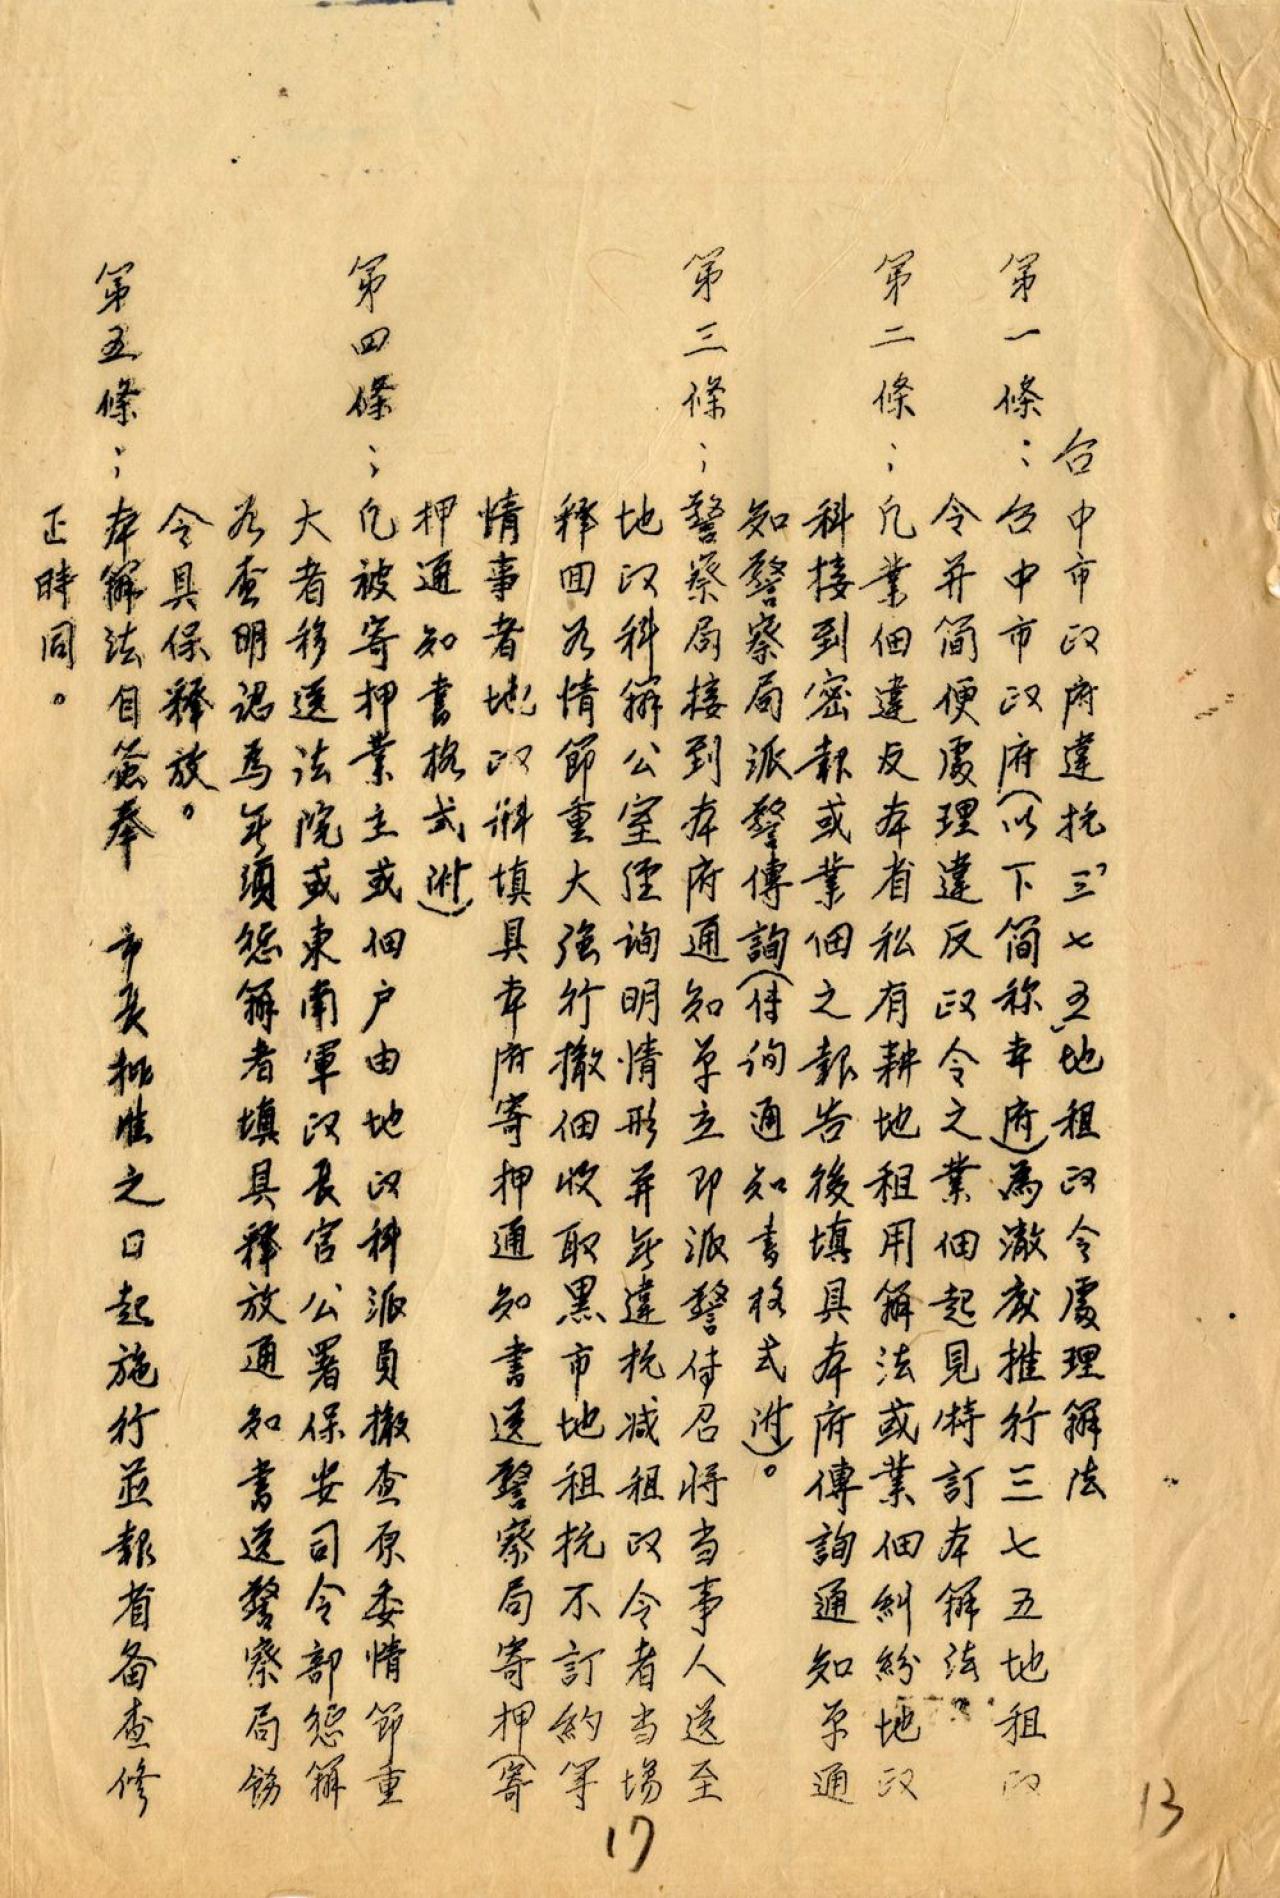 台中市政府違抗「三七五」地租政令處理辦法
第一條：台中市政府（以下简称本府）為澈底推行三七五地租政
令并简便處理違反政令之業佃起見特訂本辦法
第二條；凡業佃違反本省私有耕地租用辦法或業佃糾紛地政
科接到密報或業佃之報告後填具本府傳詢通知单通
知警察局派警傳詢（传询通知書格式附）。
第三條；警察局接到本府通知单立即派警传召将当事人送至
地政科辦公室經询明情形并無違抗减租政令者当場
释回如情節重大強行撤佃收取黑市地租抗不訂約等
情事者地政科填具本府寄押通知書送警察局寄押（寄
押通知書格式附）
第四條；凡被寄押業主或佃户由地政科派員撤查原委情節重
大者移送法院或東南軍政長官公署保安司令部惩辦
如查明認為無須惩辦者填具释放通知書送警察局飭
令具保释放。
第五條；本辦法自簽奉　市長核准之日起施行並報省备查修
正時同。
17
13